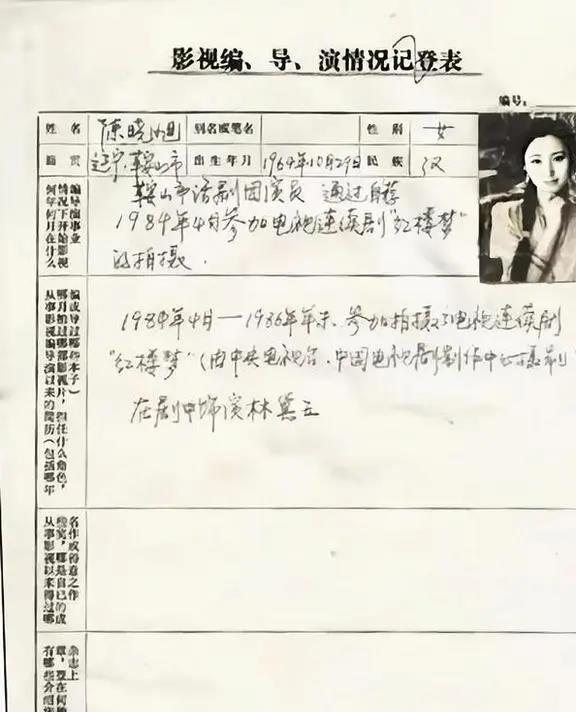 影视编、导、演情况记登表
编号:
姓名 陈晓旭 别名或笔名 性别 女
籍贯 辽宁鞍山市 出生年月 1964年10月29日 民族 汉
何年何月在什么
情况下开始影视
编导演事业
鞍山市话剧团演员 通过自荐
1984年4月参加电视连续剧"红楼梦"
的拍摄.
从事影视编导演以来的简历(包括哪年
哪月拍过哪部影视片,担任什么角色,
编或导过哪些本子)
1984年4月—1986年年末、参加拍摄了电视连续剧
"红楼梦"(由中央电视台、中国电视剧制作中心摄制)
在剧中饰演林黛玉
从事影视以来得过哪
些奖,哪是自己的成
名作或得意之作
有哪些介绍
章,登在何
杂志上